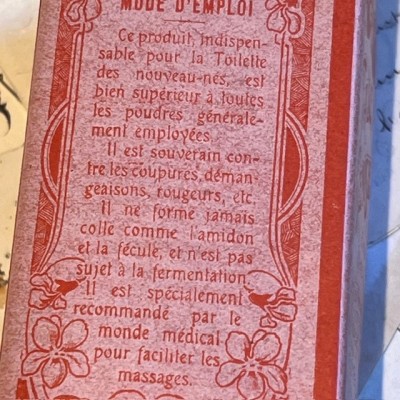 MODE D'EMPLOI
Ce produit, indispen-
sable pour la Toilette
des nouveau-nés, est
bien supérieur à toutes
les poudres générale-
ment employées.
Il est souverain con-
tre les coupures, déman-
geaisons, rougeurs, etc.
Il ne forme jamais
colle comme l'amidon
et la fécule, et n'est pas
sujet à la fermentation.
Il est spécialement
recommandé par le
monde médical
pour faciliter les
massages.